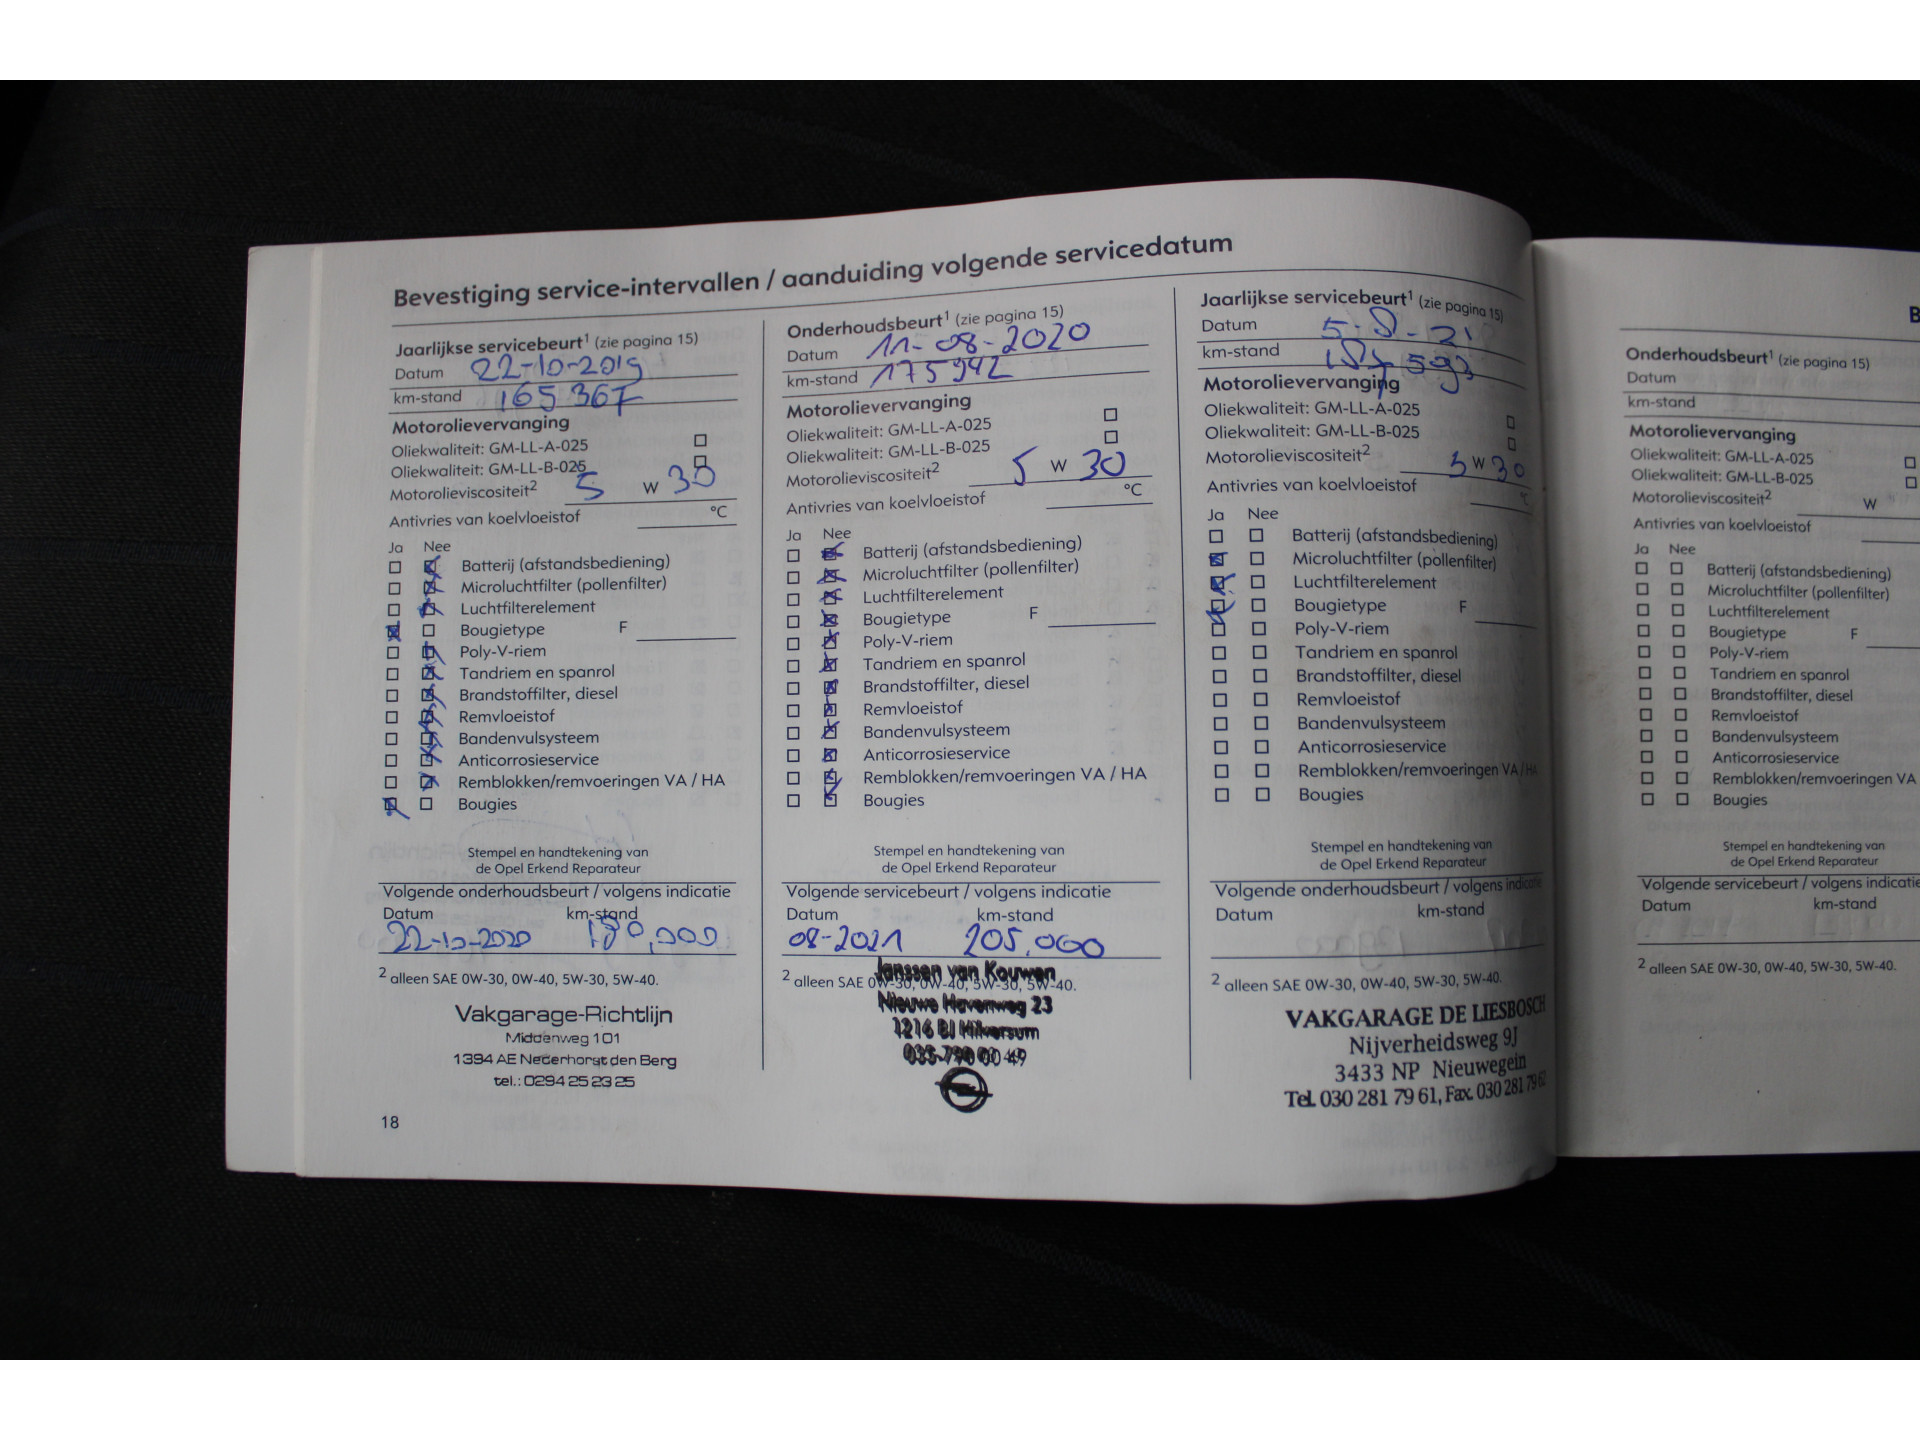 Bevestiging service-intervallen / aanduiding volgende servicedatum
Jaarlijkse servicebeurt1 (zie pagina 15)
Datum 22-10-2019
km-stand 165 367
Motorolievervanging
Oliekwaliteit: GM-LL-A-025
Oliekwaliteit: GM-LL-B-025
Motorolieviscositeit2 5 W 30
Antivries van koelvloeistof °C
Ja Nee
Batterij (afstandsbediening)
Microluchtfilter (pollenfilter)
Luchtfilterelement
Bougietype F
Poly-V-riem
Tandriem en spanrol
Brandstoffilter, diesel
Remvloeistof
Bandenvulsysteem
Anticorrosieservice
Remblokken/remvoeringen VA / HA
Bougies
Stempel en handtekening van
de Opel Erkend Reparateur
Volgende onderhoudsbeurt / volgens indicatie
Datum km-stand
22-10-2020 180,000
2 alleen SAE 0W-30, 0W-40, 5W-30, 5W-40.
Vakgarage-Richtlijn
Middenweg 101
1394 AE Nederhorst den Berg
tel.: 0294 25 23 25
18
Onderhoudsbeurt1 (zie pagina 15)
Datum 11-08-2020
km-stand 175942
Motorolievervanging
Oliekwaliteit: GM-LL-A-025
Oliekwaliteit: GM-LL-B-025
Motorolieviscositeit2 5 W 30
Antivries van koelvloeistof °C
Ja Nee
Batterij (afstandsbediening)
Microluchtfilter (pollenfilter)
Luchtfilterelement
Bougietype F
Poly-V-riem
Tandriem en spanrol
Brandstoffilter, diesel
Remvloeistof
Bandenvulsysteem
Anticorrosieservice
Remblokken/remvoeringen VA / HA
Bougies
Stempel en handtekening van
de Opel Erkend Reparateur
Volgende servicebeurt / volgens indicatie
Datum km-stand
08-2021 205.000
2 alleen SAE 0W-30, 0W-40, 5W-30, 5W-40.
Janssen van Kouwen
Nieuwe Havenweg 23
1216 BJ Hilversum
035-790 00 49
Jaarlijkse servicebeurt1 (zie pagina 15)
Datum 5-8-21
km-stand
Motorolievervanging
Oliekwaliteit: GM-LL-A-025
Oliekwaliteit: GM-LL-B-025
Motorolieviscositeit2 5 W 30
Antivries van koelvloeistof °C
Ja Nee
Batterij (afstandsbediening)
Microluchtfilter (pollenfilter)
Luchtfilterelement
Bougietype F
Poly-V-riem
Tandriem en spanrol
Brandstoffilter, diesel
Remvloeistof
Bandenvulsysteem
Anticorrosieservice
Remblokken/remvoeringen VA / HA
Bougies
Stempel en handtekening van
de Opel Erkend Reparateur
Volgende onderhoudsbeurt / volgens indicatie
Datum km-stand
2 alleen SAE 0W-30, 0W-40, 5W-30, 5W-40.
VAKGARAGE DE LIESBOSCH
Nijverheidsweg 9J
3433 NP Nieuwegein
Tel. 030 281 79 61, Fax. 030 281 79 62
B
Onderhoudsbeurt1 (zie pagina 15)
Datum
km-stand
Motorolievervanging
Oliekwaliteit: GM-LL-A-025
Oliekwaliteit: GM-LL-B-025
Motorolieviscositeit2 W
Antivries van koelvloeistof
Ja Nee
Batterij (afstandsbediening)
Microluchtfilter (pollenfilter)
Luchtfilterelement
Bougietype F
Poly-V-riem
Tandriem en spanrol
Brandstoffilter, diesel
Remvloeistof
Bandenvulsysteem
Anticorrosieservice
Remblokken/remvoeringen VA
Bougies
Stempel en handtekening van
de Opel Erkend Reparateur
Volgende servicebeurt / volgens indicatie
Datum km-stand
2 alleen SAE 0W-30, 0W-40, 5W-30, 5W-40.